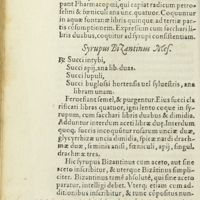 pant Pharmacopœi, qui capiat radicum petro-
selini & fœniculi ana unc. quatuor. Coquuntur
in aquæ fontanæ libris quinque, ad tertiæ par-
tis cõsumptionem. Expressum cum sacchari
libris duabus, coquitur ad syrupi consistentiam.
Syrupus Bizantinus Mes.
℞ Succi intybi,
Succi apij, ana lib. duas.
Succi lupuli,
Succi buglossi hortensis uel syluestris, ana
libram unam.
Feruefiant semel, & purgentur. Eius succi cla-
rificati libras quatuor, igni lento coque in sy-
rupum, cum sacchari libris duabus & dimidia.
Adduntur interdum aceti libræ duæ. Interdum
succis incoquuntur rosarum unciæ duæ,
glycyrrhizæ uncia dimidia, spicæ drach-
mæ duæ, seminis anisi, fœniculi, apij, singul.
drachmæ tres.
Hic syrupus Bizantinus cum aceto, aut sine
aceto inscribitur, & uterque Bizātinus simpli.
Bizantinus temerè absolutè, qui sine aceto
paratur, intelligi debet. Vterq; etiam cum ad-
ditione inscribitur, & tunc cōpositus nun-